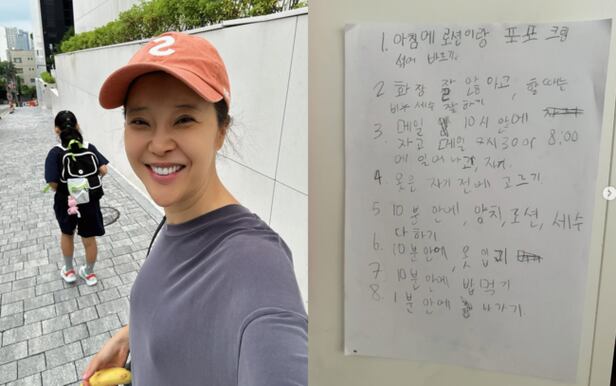 S
1. 아침에 로션이랑 포포 크림
섞어 바르기.
2 화장 잘 안하고, 할때는
세수 잘 하기
3 매일 10시 안에
자고 매일 7시30이 8:00
에 일어나고, 자.
4 옷은 자기 전에 고르기.
5 10분 안에, 양치, 로션, 세수
다 하기
6. 10분안에, 옷 입기
7 10분안에 밥먹기
8. 1분 안에 나가기.